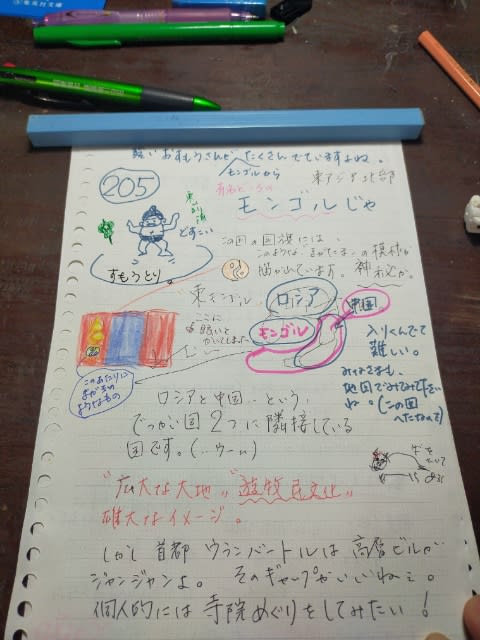 強いおすもうさんがたくさんでていますよね。
モンゴルから
205
東アジア北部
モンゴルじゃ
どすこい
すもうとり。
この国の国旗には、
このような、まがたまの模様が
描かれています。神
東モンゴル
ロシア
中国
モンゴル
ここに
かいてしまった
入りくんでて
難しい。
みなさまも、
地図でみてみて下さい
ね。(この図
へたなので)
このあたりに
まがたまの
ようなもの
ロシアと中国、という、
でっかい国2つに隣接している
国です。(…ウーム)
"広大な大地""遊牧民文化"
雄大なイメージ。
しかし首都ウランバートルは高層ビルが
ジャンジャンよ。そのギャップがいいねぇ。
個人的には寺院めぐりをしてみたい!